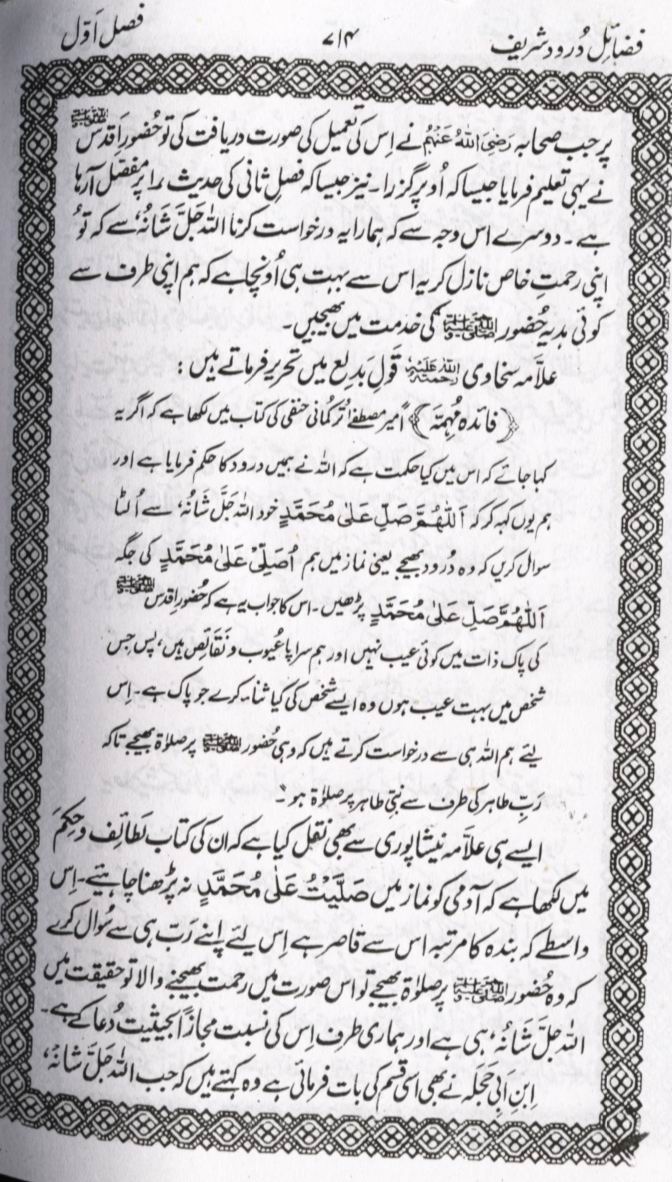 فضائل درود شریف ۷۱۴ فصل اوّل
پر جب صحابہ رَضِیَ اللّٰهُ عَنْہُمْ نے اِس کی تعمیل کی صورت دریافت کی تو حضورِ اقدس ﷺ
نے یہی تعلیم فرمایا جیسا کہ اُوپر گزرا۔ نیز جیسا کہ فصلِ ثانی کی حدیث ۱ پر مفصّل آرہا
ہے۔ دوسرے اس وجہ سے کہ ہمارا یہ درخواست کرنا اللّٰہ جَلَّ شَانُہٗ سے کہ تُو
اپنی رحمتِ خاص نازل کر یہ اس سے بہت ہی اُونچا ہے کہ ہم اپنی طرف سے
کوئی ہدیہ حُضور ﷺ کی خدمت میں بھیجیں۔
علّامہ سخاوی رحمۃ اللہ علیہ قولِ بدیع میں تحریر فرماتے ہیں:
﴿فائدہ مُہِمّہ﴾ اَمیر مصطفےٰ تُرکمانی حنفی کی کتاب میں لکھا ہے کہ اگر یہ
کہا جائے کہ اس میں کیا حکمت ہے کہ اللہ نے ہمیں درود کا حکم فرمایا ہے اور
ہم یوں کہہ کر کہ اَللّٰهُمَّ صَلِّ عَلٰی مُحَمَّدٍ خود اللّٰہ جَلَّ شَانُہٗ سے اُلٹا
سوال کریں کہ وہ دُرود بھیجے یعنی نماز میں ہم اُصَلِّیْ عَلٰی مُحَمَّدٍ کی جگہ
اَللّٰهُمَّ صَلِّ عَلٰی مُحَمَّدٍ پڑھیں۔ اس کا جواب یہ ہے کہ حُضورِ اقدس ﷺ
کی پاک ذات میں کوئی عیب نہیں اور ہم سراپا عُیوب و نَقائِص ہیں، پس جس
شخص میں بہت عیب ہوں وہ ایسے شخص کی کیا ثناء کرے جو پاک ہے۔ اِس
لئے ہم اللہ ہی سے درخواست کرتے ہیں کہ وہی حُضور ﷺ پر صلوٰۃ بھیجے تاکہ
رَبِّ طاہر کی طرف سے نبیِّ طاہر پر صلوٰۃ ہو۔
ایسے ہی علّامہ نیشاپوری سے بھی نقل کیا ہے کہ ان کی کتاب لَطائِف و حِکَم
میں لکھا ہے کہ آدمی کو نماز میں صَلَّیْتُ عَلٰی مُحَمَّدٍ نہ پڑھنا چاہیئے۔ اِس
واسطے کہ بندہ کا مرتبہ اس سے قاصر ہے اِس لئے اپنے رَبّ ہی سے سُوال کرے
کہ وہ حُضور ﷺ پر صلوٰۃ بھیجے تو اس صورت میں رحمت بھیجنے والا تو حقیقت میں
اللّٰہ جَلَّ شَانُہٗ ہی ہے اور ہماری طرف اِس کی نسبت مجازاً بحیثیت دُعا کے ہے۔
ابنِ ابی حَجلہ نے بھی اسی قسم کی بات فرمائی ہے وہ کہتے ہیں کہ جب اللّٰہ جَلَّ شَانُہٗ،